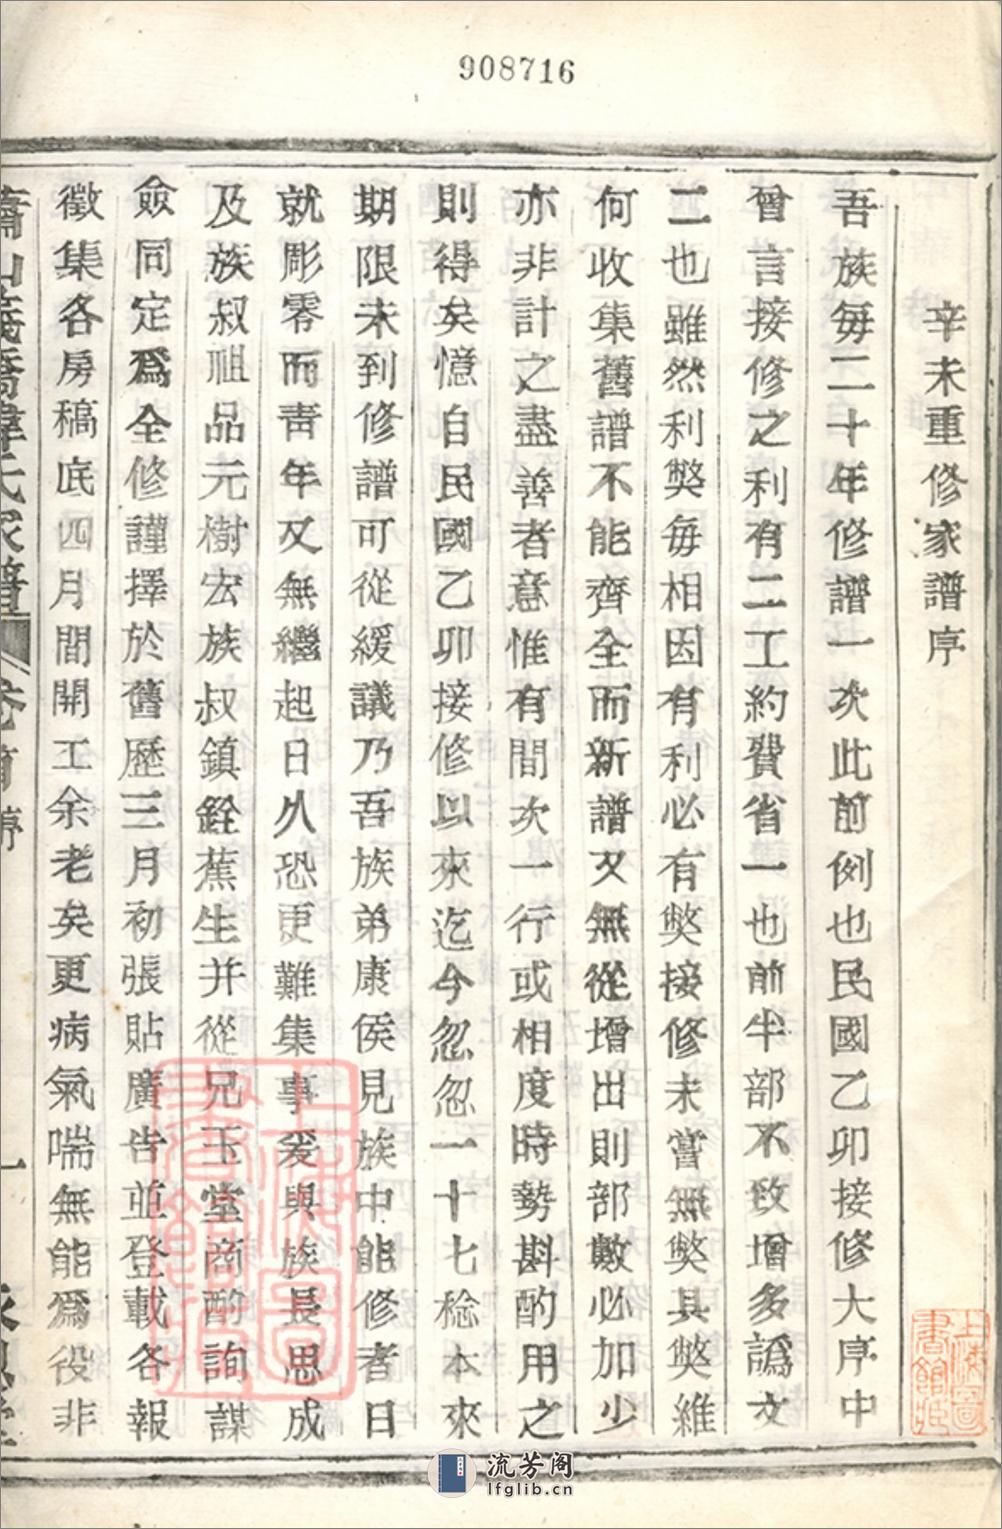 908716
辛未重修家譜序
吾族每二十年修譜一次此前例也民國乙卯接修大序中
曾言接修之利有二工約費省一也前半部不致增多譌文
二也雖然利獘每相因有利必有獘接修未嘗無獘具獘維
何收集舊譜不能齊全而新譜又無從增出則部數必加少
亦非計之盡善者意惟有間次一行或相度時勢斟酌用之
則得矣憶自民國乙卯接修以來迄今忽忽一十七稔本來
期限未到修譜可從緩議乃吾族弟康侯見族中能修者日
就彫零而靑年又無繼起日久恐更難集事爰與族長思成
及族叔祖品元樹宏族叔鎮銓蕉生并從兄玉堂商酌詢謀
僉同定爲全修謹擇於舊歷三月初張貼廣告並登載各報
徵集各房稿底四月間開工余老矣更病氣喘無能爲役非
蕭山義橋韓氏家譜 卷首 序 一
上海圖書館藏
上海圖書館藏
流芳阁
lfglib.cn